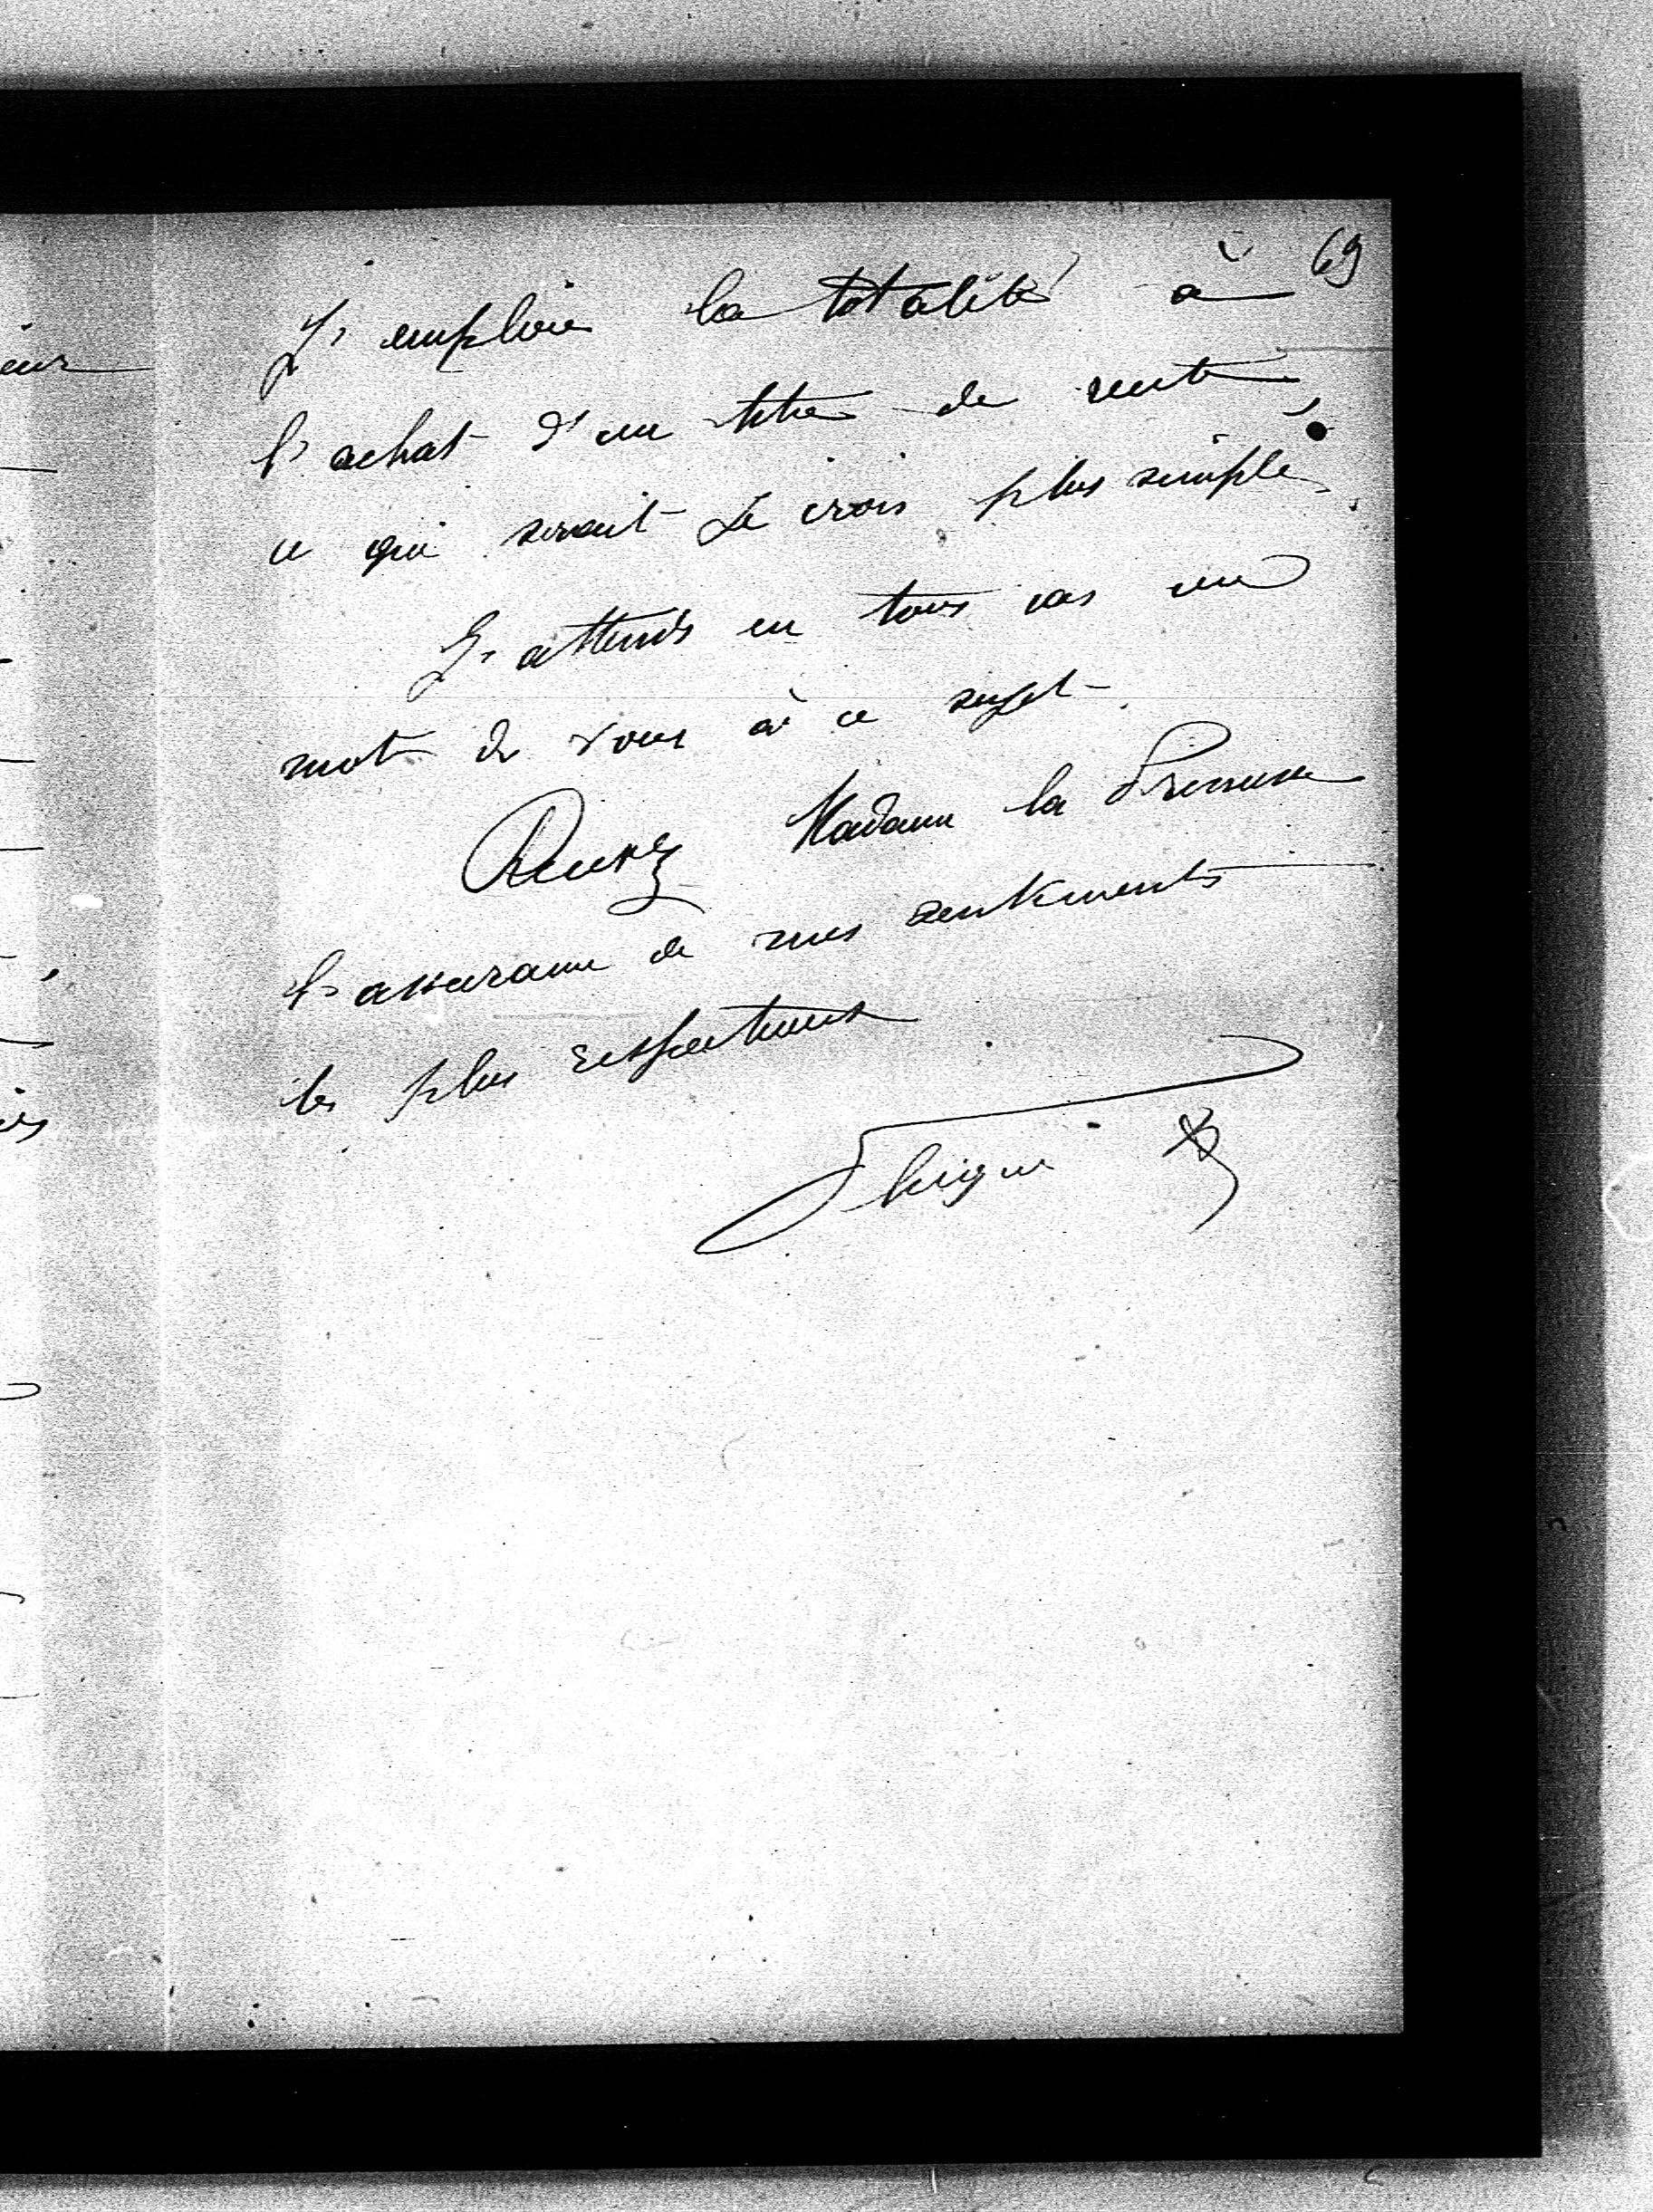 69
J'emploie la totalité à
l'achat d'un titre de rente,
ce qui serait je crois plus simple.
J'attends en tous cas un
mot de vous à ce sujet.
Recevez Madame la Princesse
l'assurance de mes sentiments
les plus respectueux